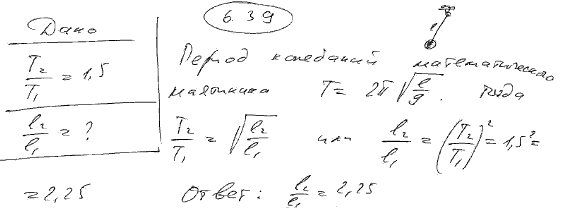 6.39
Дано
T₂/T₁ = 1,5
l₂/l₁ = ?
Период колебаний математического
маятника T = 2π√(l/g). Тогда
T₂/T₁ = √(l₂/l₁) или l₂/l₁ = (T₂/T₁)² = 1,5² =
= 2,25 Ответ: l₂/l₁ = 2,25